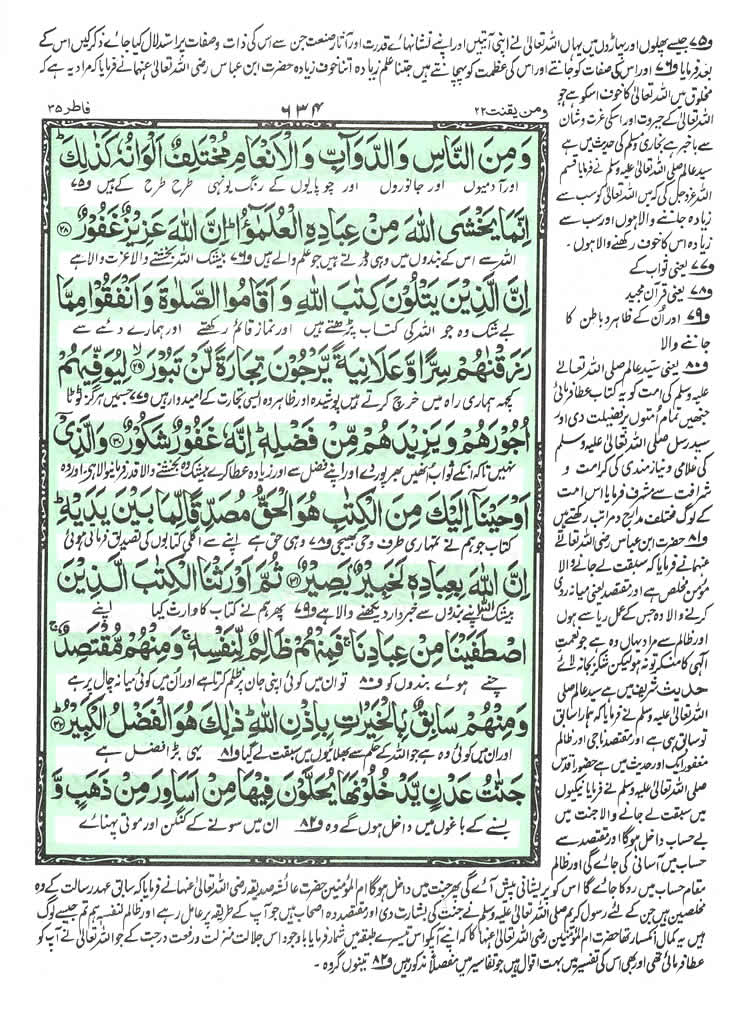 و۷۵ جیسے پھلوں اور پہاڑوں میں یہاں اللہ تعالیٰ نے اپنی آیتیں اور اپنے نشانہائے قدرت اور آثار صنعت جن سے اس کی ذات و صفات پر استدلال کیا جائے ذکر کیں اس کے
بعد فرمایا و۷۶ اور اس کی صفات کو جانتے اور اس کی عظمت کو پہچانتے ہیں جتنا علم زیادہ اتنا خوف زیادہ حضرت ابن عباس رضی اللہ تعالیٰ عنہما نے فرمایا کہ مراد یہ ہے کہ
مخلوق میں اللہ تعالیٰ کا خوف اسکو ہے جو
اللہ تعالیٰ کے جبروت اور اسکی عزت و شان
سے باخبر ہے بخاری و مسلم کی حدیث میں ہے
سید عالم صلی اللہ تعالیٰ علیہ وسلم نے فرمایا قسم
اللہ عزوجل کی کہ میں اللہ تعالیٰ کو سب سے
زیادہ جاننے والا ہوں اور سب سے
زیادہ اس کا خوف رکھنے والا ہوں ۔
و۷۷ یعنی ثواب کے
و۷۸ یعنی قرآن مجید
و۷۹ اور اُن کے ظاہر و باطن کا
جاننے والا
و۸۰ یعنی سید عالم صلی اللہ تعالیٰ
علیہ وسلم کی امت کو یہ کتاب عطا فرمائی
جنھیں تمام اُمتوں پر فضیلت دی اور
سید رسل صلی اللہ تعالیٰ علیہ وسلم
کی غلامی و نیازمندی کی کرامت و
شرافت سے مشرف فرمایا اس امت
کے لوگ مختلف مدارج و مراتب رکھتے ہیں
و۸۱ حضرت ابن عباس رضی اللہ تعالیٰ
عنہما نے فرمایا کہ سبقت لے جانے والا
مومن مخلص ہے اور مقتصد یعنی میانہ روی
کرنے والا وہ جس کے عمل ریا سے ہوں
اور ظالم سے مراد یہاں وہ ہے جو نعمت
الٰہی کا منکر تو نہ ہو لیکن شکر بجا نہ لائے
حدیث شریف میں ہے سید عالم صلی
اللہ تعالیٰ علیہ وسلم نے فرمایا کہ ہمارا سابق
تو سابق ہی ہے اور مقتصد ناجی اور ظالم
مغفور ایک اور حدیث میں ہے حضور اقدس
صلی اللہ تعالیٰ علیہ وسلم نے فرمایا نیکیوں
میں سبقت لے جانے والا جنت میں
بے حساب داخل ہوگا اور مقتصد سے
حساب میں آسانی کی جائے گی اور ظالم
ومن یقنت ۲۲
۶۳۴
فاطر ۳۵
وَمِنَ النَّاسِ وَالدَّوَآبِّ وَالْاَنْعَامِ مُخْتَلِفٌ اَلْوَانُهٗ كَذٰلِكَ ؕ
اور آدمیوں اور جانوروں اور چوپایوں کے رنگ یونہی طرح طرح کے ہیں و۷۵
اِنَّمَا يَخْشَى اللّٰهَ مِنْ عِبَادِهِ الْعُلَمٰٓؤُا ؕ اِنَّ اللّٰهَ عَزِيْزٌ غَفُوْرٌ ۲۸
اللہ سے اس کے بندوں میں وہی ڈرتے ہیں جو علم والے ہیں و۷۶ بیشک اللہ بخشنے والا عزت والا ہے
اِنَّ الَّذِيْنَ يَتْلُوْنَ كِتٰبَ اللّٰهِ وَاَقَامُوا الصَّلٰوةَ وَاَنْفَقُوْا مِمَّا
بے شک وہ جو اللہ کی کتاب پڑھتے ہیں اور نماز قائم رکھتے اور ہمارے دئے سے
رَزَقْنٰهُمْ سِرًّا وَّعَلَانِيَةً يَّرْجُوْنَ تِجَارَةً لَّنْ تَبُوْرَ ۙ ۲۹ لِيُوَفِّيَهُمْ
کچھ ہماری راہ میں خرچ کرتے ہیں پوشیدہ اور ظاہر وہ ایسی تجارت کے امیدوار ہیں و۷۷ جس میں ہرگز ٹوٹا
اُجُوْرَهُمْ وَيَزِيْدَهُمْ مِّنْ فَضْلِهٖ ؕ اِنَّهٗ غَفُوْرٌ شَكُوْرٌ ۳۰ وَالَّذِيْٓ
نہیں تاکہ انکے ثواب انھیں بھرپور دے اور اپنے فضل سے اور زیادہ عطا کرے بیشک وہ بخشنے والا قدر فرمانیوالا ہے اور وہ
اَوْحَيْنَآ اِلَيْكَ مِنَ الْكِتٰبِ هُوَ الْحَقُّ مُصَدِّقًا لِّمَا بَيْنَ يَدَيْهِ ؕ
کتاب جو ہم نے تمہاری طرف وحی بھیجی و۷۸ وہی حق ہے اپنے سے اگلی کتابوں کی تصدیق فرماتی ہوئی
اِنَّ اللّٰهَ بِعِبَادِهٖ لَخَبِيْرٌۢ بَصِيْرٌ ۳۱ ثُمَّ اَوْرَثْنَا الْكِتٰبَ الَّذِيْنَ
بیشک اللہ اپنے بندوں سے خبردار دیکھنے والا ہے و۷۹ پھر ہم نے کتاب کا وارث کیا اپنے
اصْطَفَيْنَا مِنْ عِبَادِنَا ۚ فَمِنْهُمْ ظَالِمٌ لِّنَفْسِهٖ ۚ وَمِنْهُمْ مُّقْتَصِدٌ ۚ
چنے ہوئے بندوں کو و۸۰ تو ان میں کوئی اپنی جان پر ظلم کرتا ہے اور اُن میں کوئی میانہ چال پر ہے
وَمِنْهُمْ سَابِقٌۢ بِالْخَيْرٰتِ بِاِذْنِ اللّٰهِ ؕ ذٰلِكَ هُوَ الْفَضْلُ الْكَبِيْرُ ؕ ۳۲
اور ان میں کوئی وہ ہے جو اللہ کے حکم سے بھلائیوں میں سبقت لے گیا و۸۱ یہی بڑا فضل ہے
جَنّٰتُ عَدْنٍ يَّدْخُلُوْنَهَا يُحَلَّوْنَ فِيْهَا مِنْ اَسَاوِرَ مِنْ ذَهَبٍ وَّ
بسنے کے باغوں میں داخل ہوں گے وہ و۸۲ ان میں سونے کے کنگن اور موتی پہنائے
مقام حساب میں روکا جائے گا اس کو پریشانی پیش آئے گی پھر جنت میں داخل ہوگا ام المؤمنین حضرت عائشہ صدیقہ رضی اللہ تعالیٰ عنہا نے فرمایا کہ سابق عہد رسالت کے وہ
مخلصین ہیں جن کے لئے رسول کریم صلی اللہ تعالیٰ علیہ وسلم نے جنت کی بشارت دی اور مقتصد وہ اصحاب ہیں جو آپ کے طریقہ پر عامل رہے اور ظالم لنفسہ ہم تم جیسے لوگ
ہیں یہ کمال انکسار تھا حضرت ام المؤمنین رضی اللہ تعالیٰ عنہا کا کہ اپنے آپ کو اس تیسرے طبقہ میں شمار فرمایا باوجود اس جلالت منزلت و رفعت درجت کے جو اللہ تعالیٰ نے آپ کو
عطا فرمائی تھی اور بھی اس کی تفسیر میں بہت اقوال ہیں جو تفاسیر میں مفصلاً مذکور ہیں و۸۲ تینوں گروہ ۔